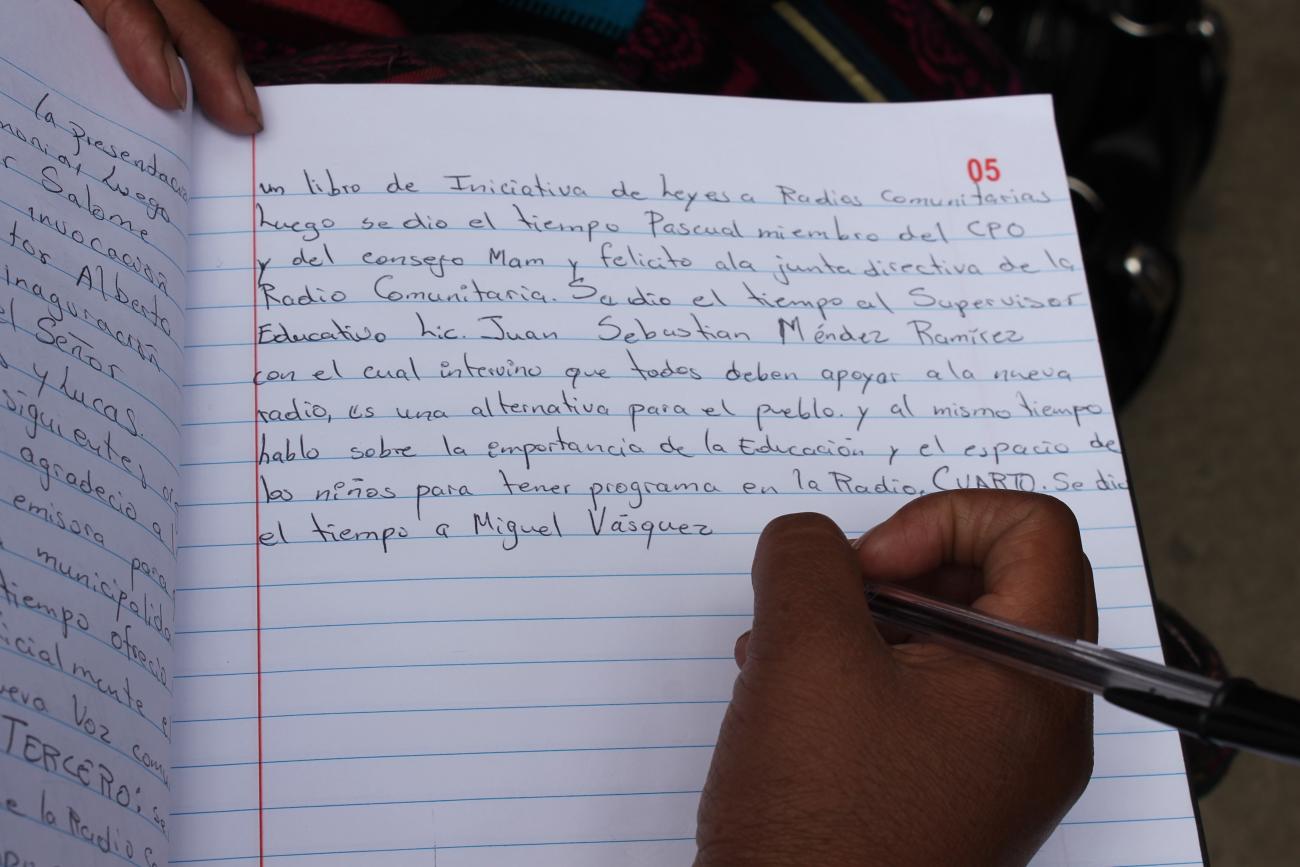 la Presendaci
monial Luego
r Salome
invocación
tor Alberto
inaguración
el Señor
y Lucas.
siguientes
agradecio a l
emisora para
municipalida
tiempo ofrecio
icialmente e
ueva Voz comu
TERCERO: se
e la Radio Co
05
un libro de Iniciativa de Leyes a Radios Comunitarias
Luego se dio el tiempo Pascual miembro del CPO
y del consejo Mam y felicito ala junta directiva de la
Radio Comunitaria. Se dio el tiempo al Supervisor
Educativo Lic. Juan Sebastian Méndez Ramírez
con el cual intervino que todos deben apoyar a la nueva
radio, es una alternativa para el pueblo. y al mismo tiempo
hablo sobre la emportancia de la Educación y el espacio de
los niños para tener programa en la Radio. CUARTO. Se dio
el tiempo a Miguel Vásquez